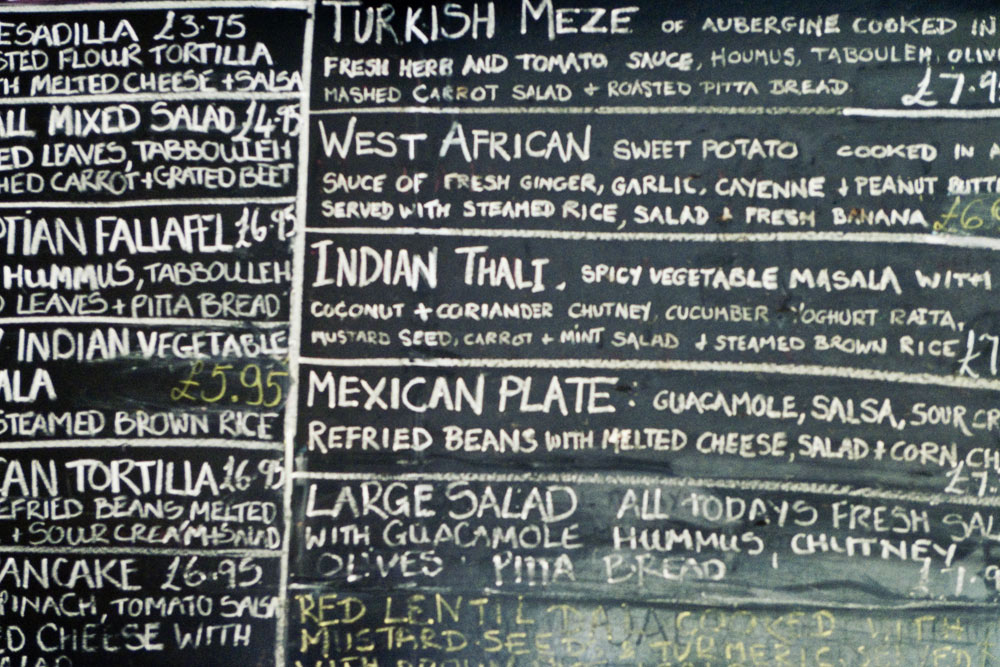 ESADILLA £3.75
STED FLOUR TORTILLA
TH MELTED CHEESE + SALSA
ALL MIXED SALAD £4.95
ED LEAVES, TABBOULEH
HED CARROT + GRATED BEET
PTIAN FALLAFEL £6.95
HUMMUS, TABBOULEH
LEAVES + PITTA BREAD
INDIAN VEGETABLE
ALA £5.95
STEAMED BROWN RICE
CAN TORTILLA £6.95
EFRIED BEANS MELTED
+ SOUR CREAM + SALAD
ANCAKE £6.95
PINACH, TOMATO SALSA
ED CHEESE WITH
SALAD
TURKISH MEZE OF AUBERGINE COOKED IN
FRESH HERB AND TOMATO SAUCE, HOUMUS, TABOULEH, OLIV
MASHED CARROT SALAD + ROASTED PITTA BREAD. £7.9
WEST AFRICAN SWEET POTATO COOKED IN A
SAUCE OF FRESH GINGER, GARLIC, CAYENNE + PEANUT BUTT
SERVED WITH STEAMED RICE, SALAD + FRESH BANANA £6
INDIAN THALI. SPICY VEGETABLE MASALA WITH
COCONUT + CORIANDER CHUTNEY, CUCUMBER YOGHURT RAITA,
MUSTARD SEED, CARROT + MINT SALAD + STEAMED BROWN RICE £7
MEXICAN PLATE: GUACAMOLE, SALSA, SOUR CR
REFRIED BEANS WITH MELTED CHEESE, SALAD + CORN CH
£7.
LARGE SALAD ALL TODAYS FRESH SAL
WITH GUACAMOLE HUMMUS, CHUTNEY
OLIVES PITTA BREAD £7.9
RED LENTIL COOKED WITH
MUSTARD SEED & TURMERIC
WITH BROWN